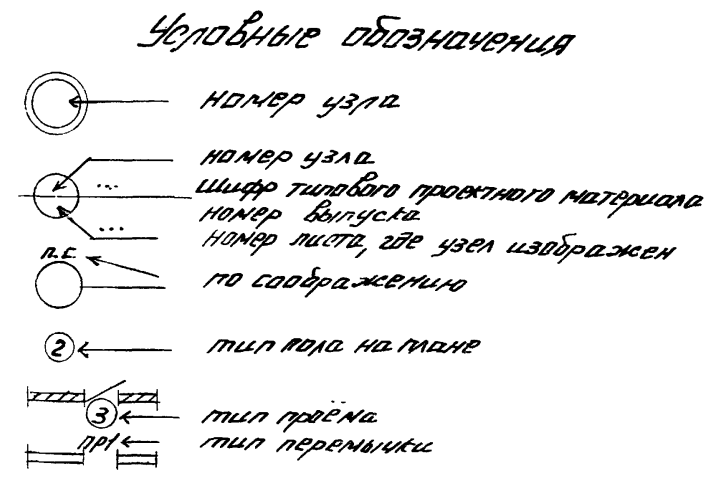 Условные обозначения
номер узла
номер узла
...
шифр типового проектного материала
номер выпуска
...
номер листа, где узел изображен
п.с.
по соображению
2
тип пола на плане
3
тип проёма
ПР1
тип перемычки